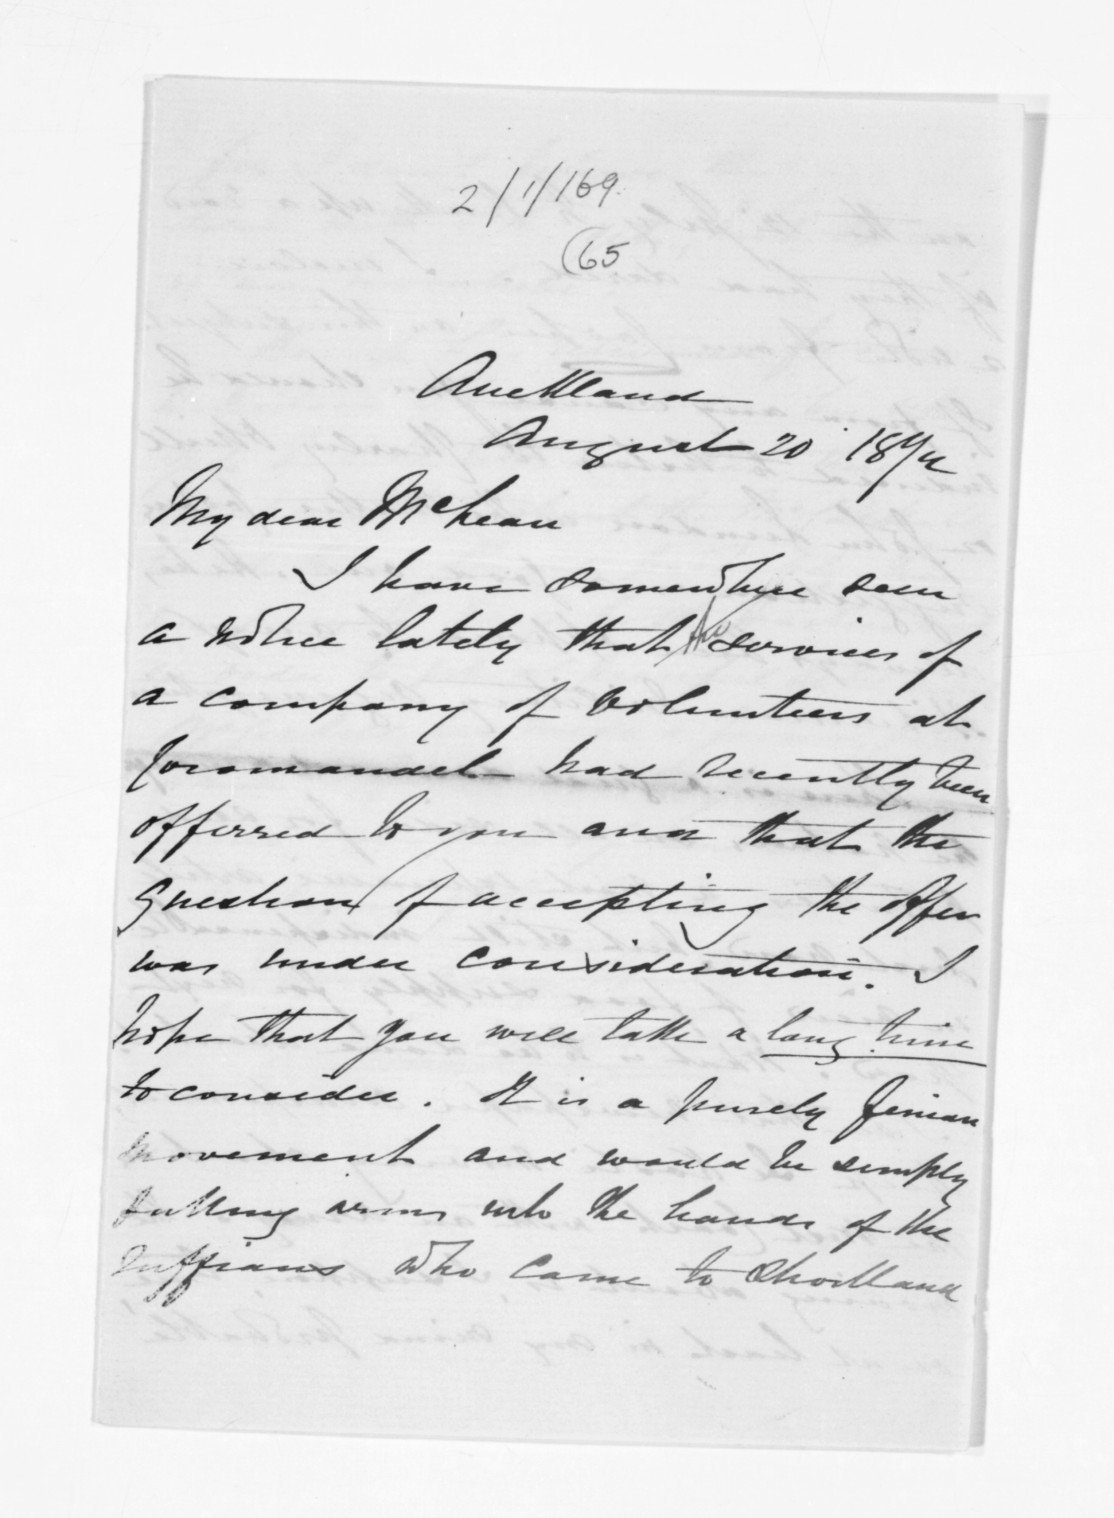 2/1/169.
(65
Auckland
August 20 18
My dear McLean
I have somewhere seen
a notice lately that the services of
a company of Volunteers at
Coromandel had recently been
offerred to you and that the
question of accepting the offer
was under consideration. I
hope that you will take a long time
to consider. It is a purely Fenian
movement and would be simply
putting arms into the hands of the
ruffians who came to Shortland